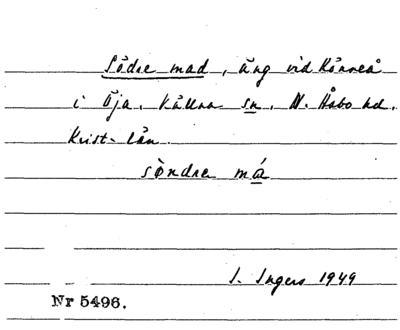 Södre mad, äng vid Rönneå
i Öja, Källna sn, N. Åsbo hd.
Krist. län.
söndre má
I. Ingers 1949
Nr 5496.